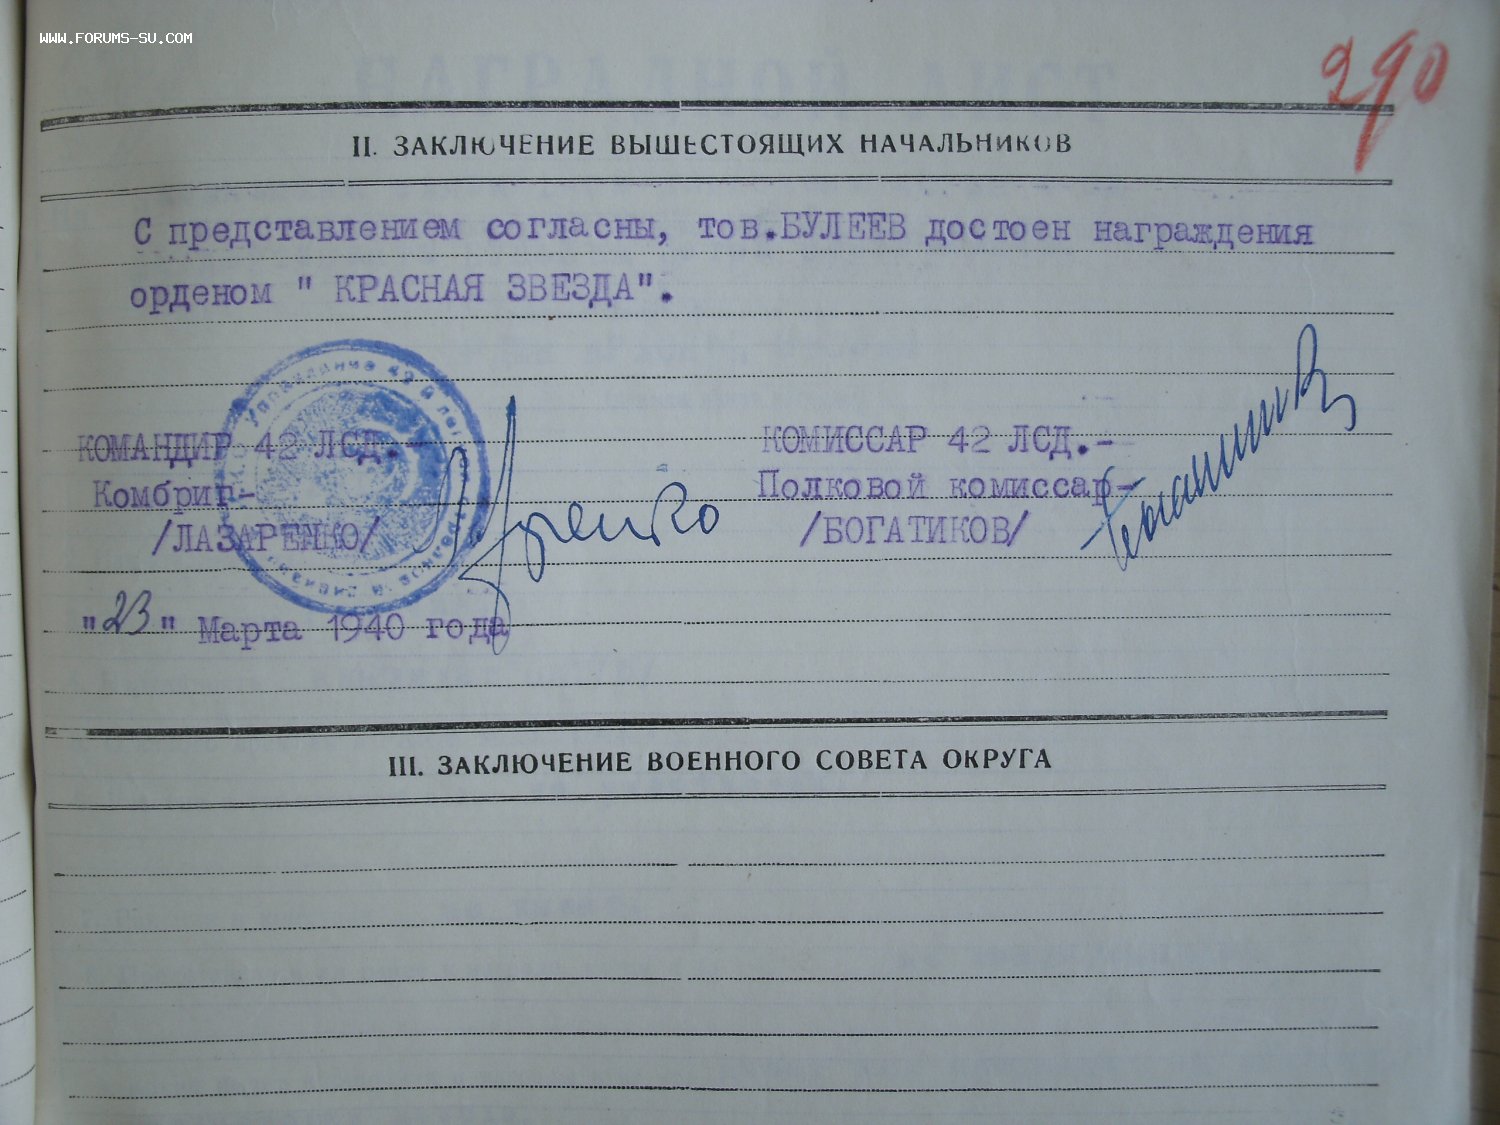 WWW.FORUMS-SU.COM
290
II. ЗАКЛЮЧЕНИЕ ВЫШЕСТОЯЩИХ НАЧАЛЬНИКОВ
С представлением согласны, тов.БУЛЕЕВ достоен награждения
орденом " КРАСНАЯ ЗВЕЗДА".
Управление 42
КОМАНДИР 42 ЛСД.-
Комбриг-
/ЛАЗАРЕНКО/
КОМИССАР 42 ЛСД.-
Полковой комиссар-
/БОГАТИКОВ/
"23" Марта 1940 года
III. ЗАКЛЮЧЕНИЕ ВОЕННОГО СОВЕТА ОКРУГА